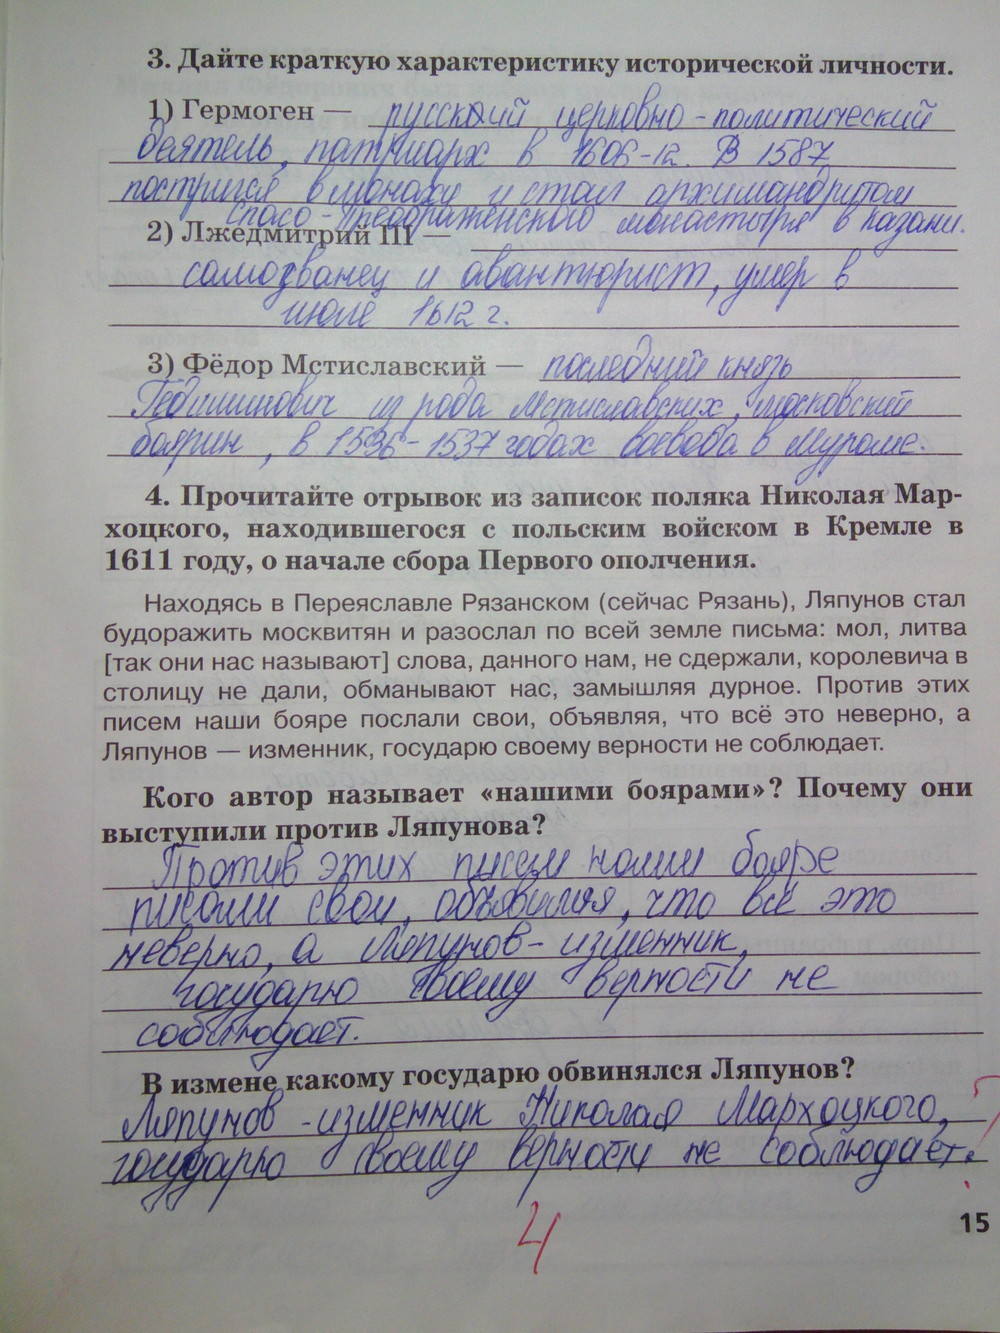 3. Дайте краткую характеристику исторической личности.
1) Гермоген — русский церковно-политический
деятель, патриарх в 1606-12. В 1587
постригся в монахи и стал архимандритом
Спасо-Преображенского монастыря в Казани.
2) Лжедмитрий III —
самозванец и авантюрист, умер в
июле 1612 г.
3) Фёдор Мстиславский — последний князь
Гедиминович из рода Мстиславских, московский
боярин, в 1536-1537 годах воевода в Муроме.
4. Прочитайте отрывок из записок поляка Николая Мар-
хоцкого, находившегося с польским войском в Кремле в
1611 году, о начале сбора Первого ополчения.
Находясь в Переяславле Рязанском (сейчас Рязань), Ляпунов стал
будоражить москвитян и разослал по всей земле письма: мол, литва
[так они нас называют] слова, данного нам, не сдержали, королевича в
столицу не дали, обманывают нас, замышляя дурное. Против этих
писем наши бояре послали свои, объявляя, что всё это неверно, а
Ляпунов — изменник, государю своему верности не соблюдает.
Кого автор называет «нашими боярами»? Почему они
выступили против Ляпунова?
Против этих писем наши бояре
писали свои, объявляя, что всё это
неверно, а Ляпунов - изменник,
государю своему верности не
соблюдает.
В измене какому государю обвинялся Ляпунов?
Ляпунов - изменник Николая Мархоцкого,
государю своему верности не соблюдает.
4
15